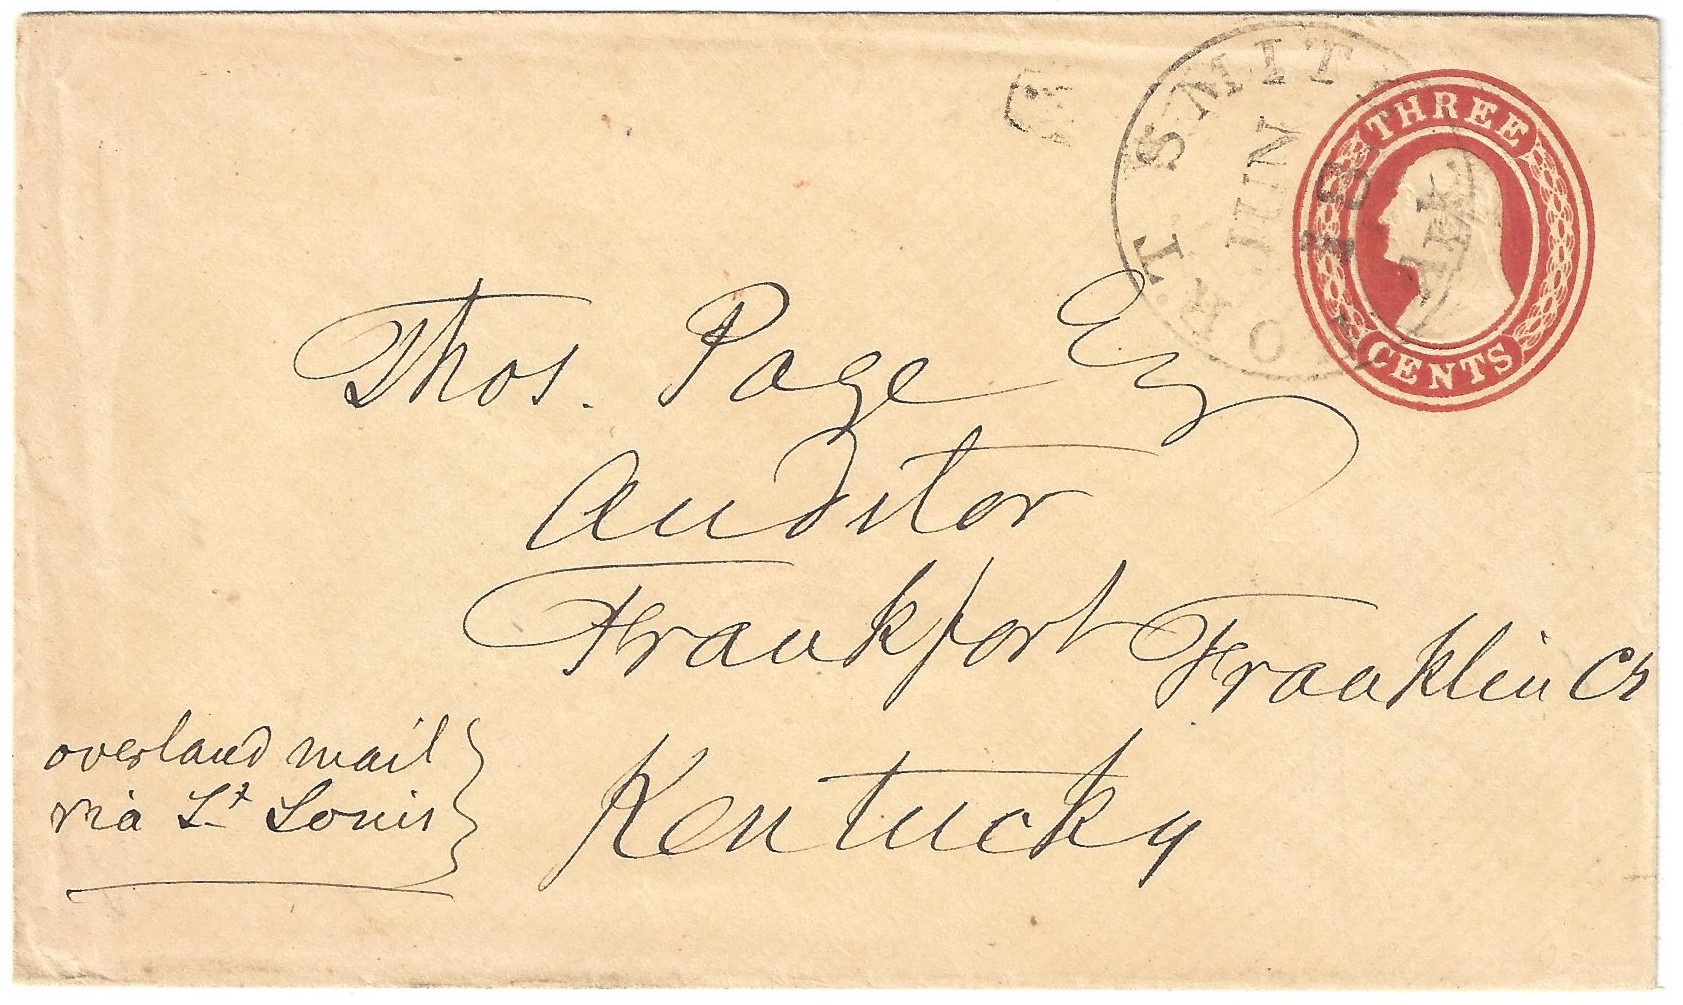 FORT SMITH
JUN
18
ARK.
THREE
CENTS
Thos. Page Esq
Auditor
Frankfort Franklin Co
Kentucky
overland mail
via St Louis